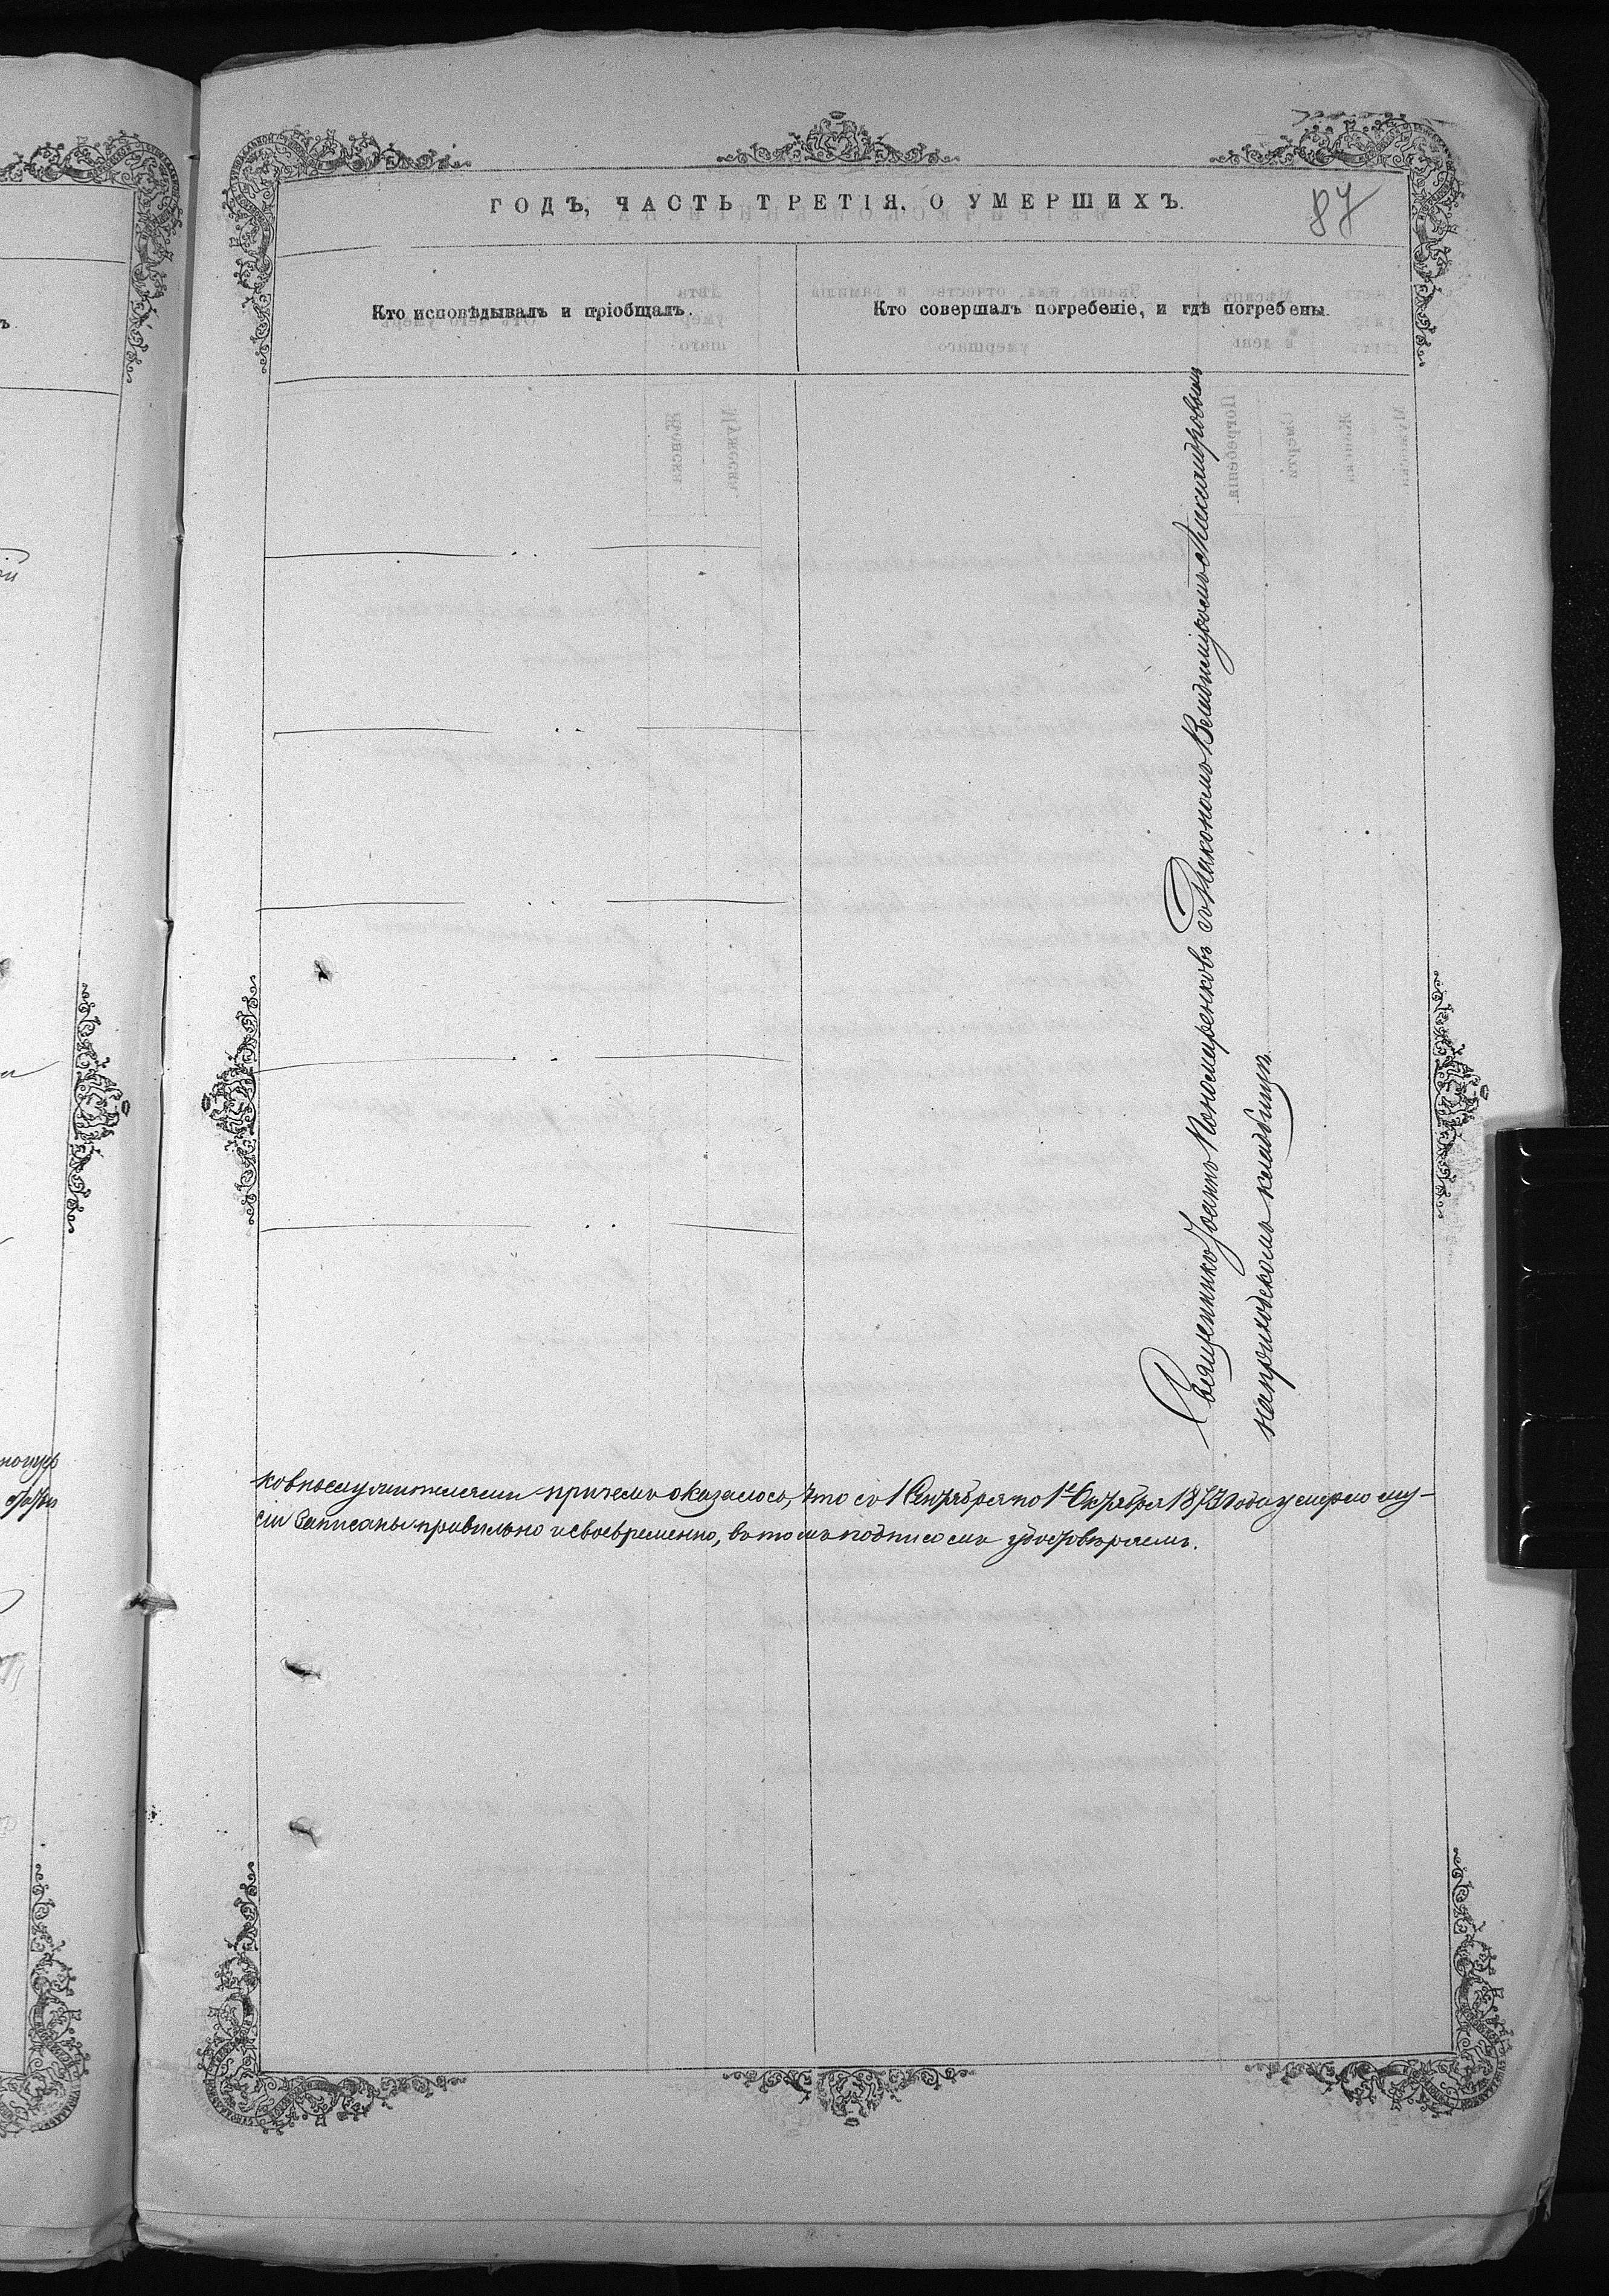 ГОДЪ, ЧАСТЬ ТРЕТІЯ, О УМЕРШИХЪ.
87
Кто исповѣдывалъ и пріобщалъ.
Кто совершалъ погребеніе, и гдѣ погребены.
Священникъ Іоаннъ Пономаренковъ съ Діакономъ Владиміромъ Александровымъ
на приходскомъ кладбищѣ
ковнослужителями причемъ оказалось, что съ 1 Сентября по 1е Октября 187 года умершо му-
сіи записаны правильно и своевременно, въ томъ подписомъ удостовѣряемъ.